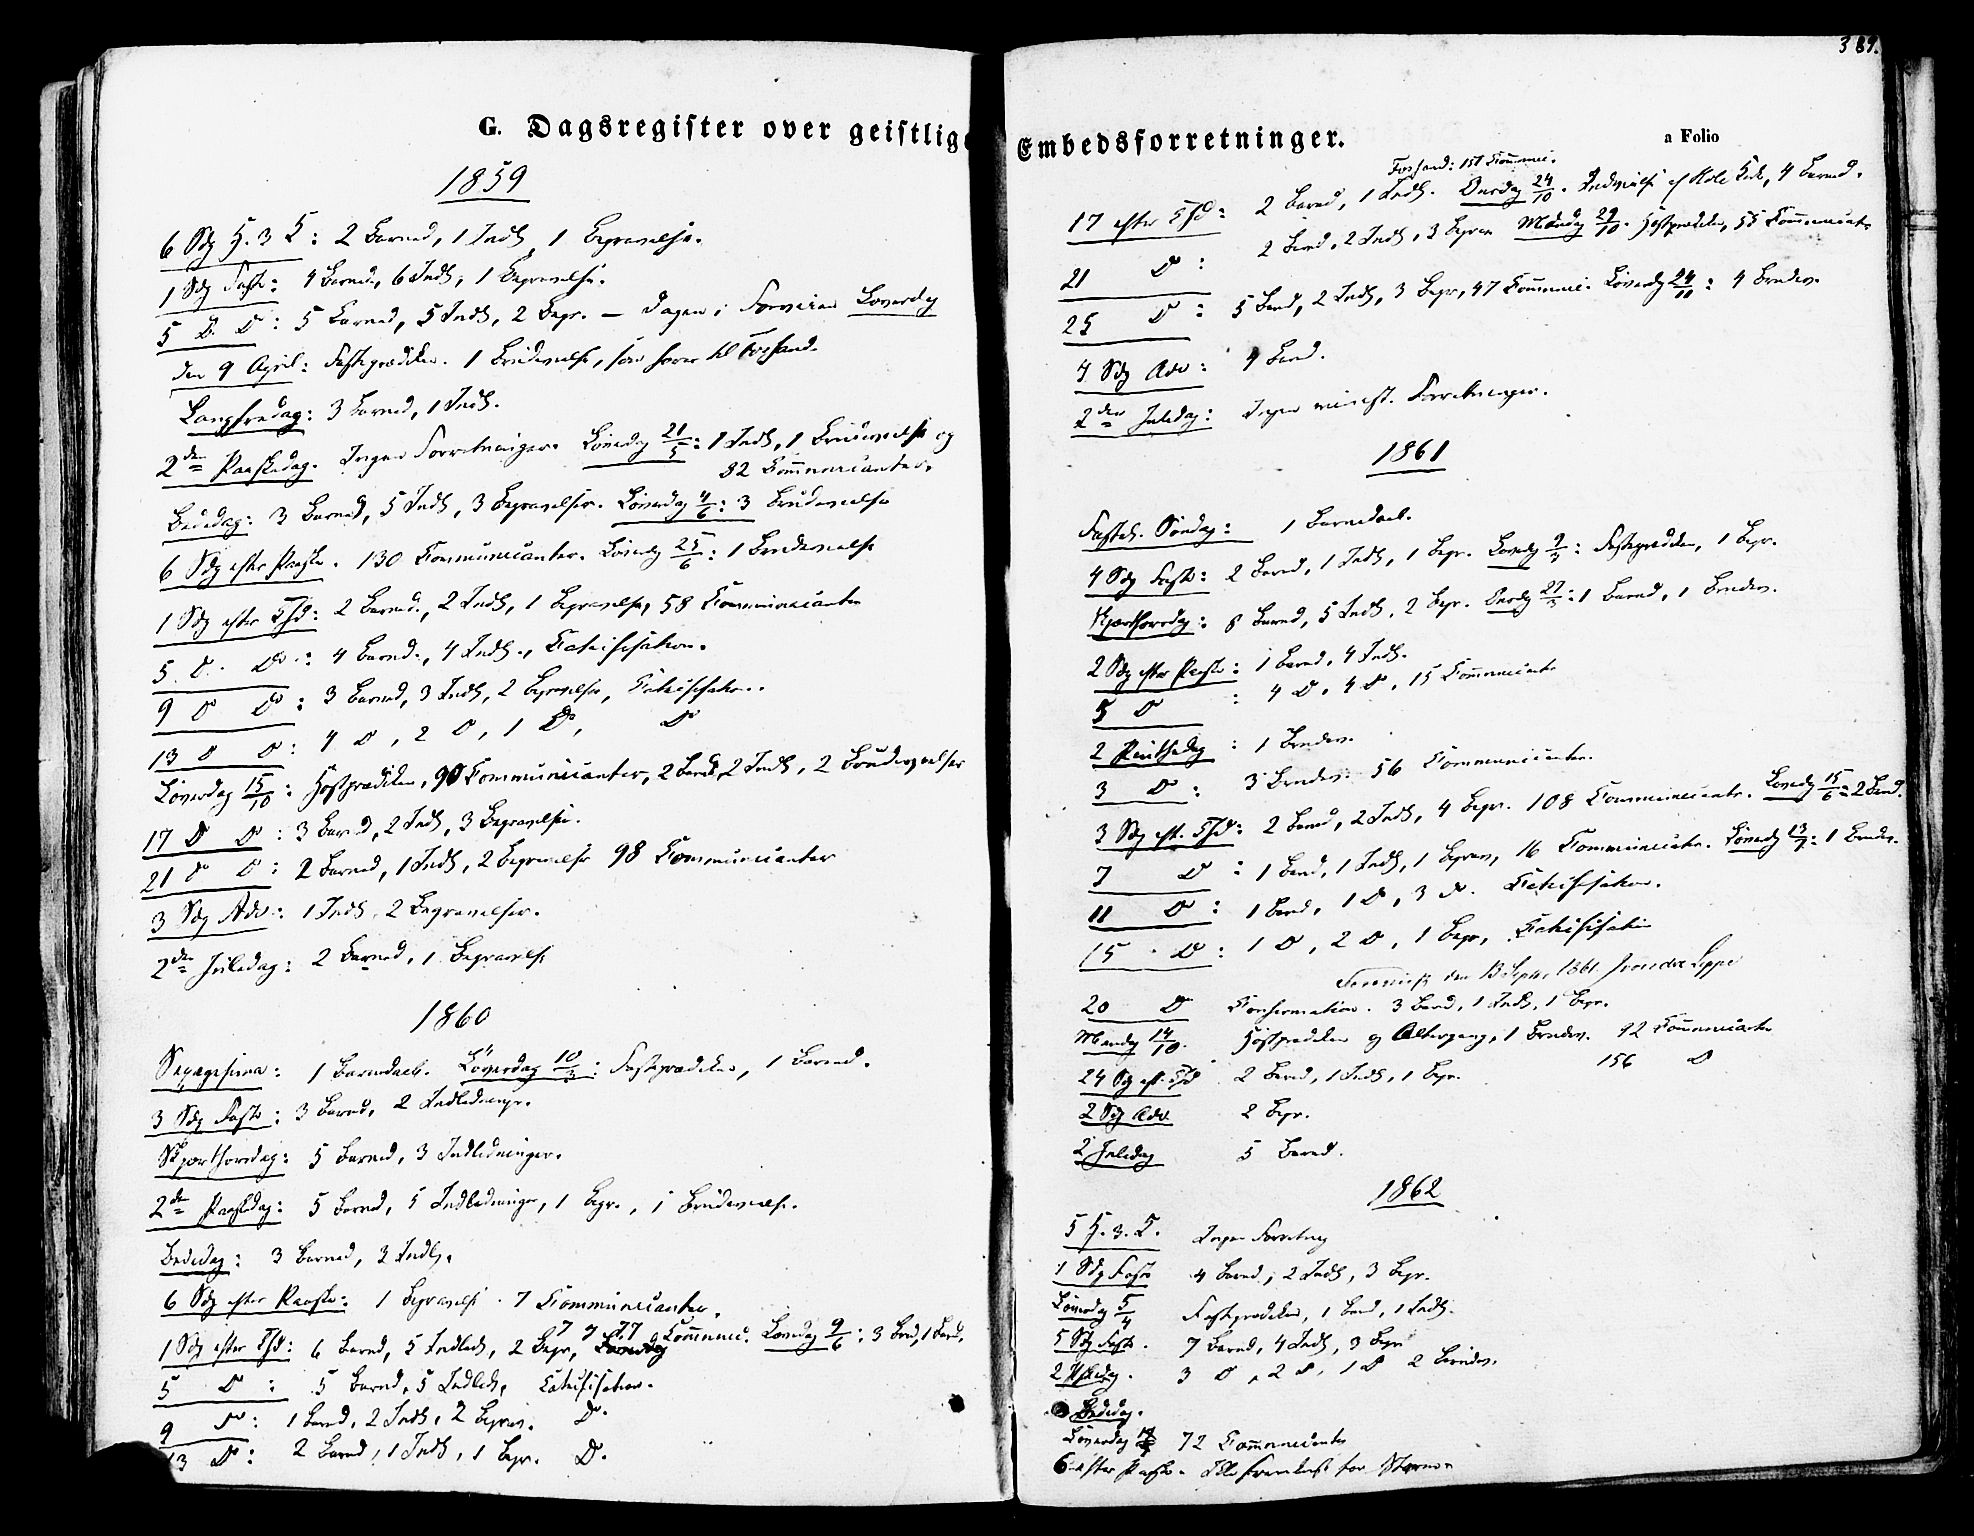 G. Dagsregister over geistlige
1859
6 Sdg H. 3 K: 2 Barned, 1 Indl, 1 Begravelse.
1 Sdg Faste: 4 Barned, 6 Indl, 1 Begravelse.
5 D. D: 5 Barned, 5 Indl, 2 Begr. — Løverdag
den 9 April: Fasteprædiken. 1 Brudevielse,
Langfredag: 3 Barned, 1 Indl.
2den Paaskedag. Ingen Forretninger. Løverdag 21/5: 1 Indl, 1 Brudevielse og
82 Communicanter.
Bededag: 3 Barned, 5 Indl, 3 Begravelser. Løverdag 4/6: 3 Brudevielse
6 Sdg efter Paaske. 130 Communicanter. Løverdg 25/6: 1 Brudevielse
1 Sdg efter Tfd: 2 Barned., 2 Indl, 1 Begravelse, 58 Communicanter
5. D. D.: 4 Barned., 4 Indl., Catechisation.
9 D D: 3 Barned, 3 Indl, 2 Begravelse, Catechisation.
13 D D: 4 D, 2 D, 1 D, D
Løverdag 15/10: Høstprædiken, 90 Communicanter, 2 Barned, 2 Indl, 2 Brudevielser
17 D D: 3 Barned, 2 Indl, 3 Begravelse.
21 D D: 2 Barned, 1 Indl, 2 Begravelse 98 Communicanter
3 Sdg Adv: 1 Indl, 2 Begravelser.
2den Juledag: 2 Barned, 1 Begravelse
1860
1 Barnedaab. Løverdag 10/3: Fasteprædiken, 1 Barned.
3 Sdg Faste: 3 Barned, 2 Indledninger.
Skjærthorsdag: 5 Barned, 3 Indledninger.
2den Paaskedag: 5 Barned, 5 Indledninger, 1 Begr., 1 Brudevielse.
Bededag: 3 Barned, 3 Indl.
6 Sdg efter Paaske: 1 Begravelse. 7 Communicanter.
1 Sdg efter Tfd: 6 Barned, 5 Indled, 2 Begr, 77 Communi. Løverdag 9/6: 3 Brud, 1 Barnd.
5 D: 5 Barned, 5 Indled, Catechisation.
9 D: 1 Barned, 2 Indl, 2 Begrav. D.
13 D: 2 Barned, 1 Indl, 1 Begr. D.
389.
Embedsforretninger.
a Folio
17 efter Tfd: 2 Barned, 1 Indl. Onsdag 24/10. 4 Barned.
21 D: 2 Barned, 2 Indl, 3 Begrav. Mandag 29/10. Høstprædiken, 55 Communicant.
25 D: 5 Barnd, 2 Indl, 3 Begr, 47 Communi. Løverdg 24/11: 4 Brudev.
4 Sdg Adv: 4 Barnd.
2den Juledag: Ingen minist. Forretninger.
1861
Fastel. Søndag: 1 Barnedaab.
4 Sdg Faste: 2 Barnd, 1 Indl, 1 Begr. Løverdg 9/3: Fasteprædiken, 1 Begr.
Skjærthorsdag: 8 Barned, 5 Indl, 2 Begr. Onsdg 27/3: 1 Barned, 1 Brudev.
2 Sdg efter Paaske: 1 Barnd, 4 Indl.
5 D: 4 D, 4 D, 15 Communicant
2 Pintsedag: 1 Brudev.
3 D: 3 Brudev. 56 Communicanter.
3 Sdg eft. Tfd: 2 Barned, 2 Indl, 4 Begr. 108 Communicant. Løverdg 15/6: 2 Barnd.
7 D: 1 Barnd, 1 Indl, 1 Begrav, 16 Communicant. Løverdg 13/7: 1 Brudev.
11 D: 1 Barnd, 1 D, 3 D. Catechisation.
15 D: 1 D, 2 D, 1 Begr, Catechisation
den 13 Septbr 1861. J von der Lippe
20 D Confirmation. 3 Barnd, 1 Indl, 1 Begr.
Mandag 14/10. Høstprædiken og Altergang, 1 Brudev. 92 Communicant
24 Sdg eft. Tfd 2 Barned, 1 Indl, 1 Begr. 156 D
2 Sdg Adv. 2 Begr.
2 Juledag 5 Barned.
1862
5 H. 3. K. Ingen Forretning
1 Sdg Faste 4 Barned, 2 Indl, 3 Begr.
Løverdag 5/4 Fasteprædiken, 1 Barnd, 1 Indl.
5 Sdg Faste. 7 Barned, 4 Indl, 3 Begr
2 Pskedag. 3 D, 2 D, 1 D 2 Brudev.
Bededag.
Løverdag 72 Communicanter
6 efter Paaske.